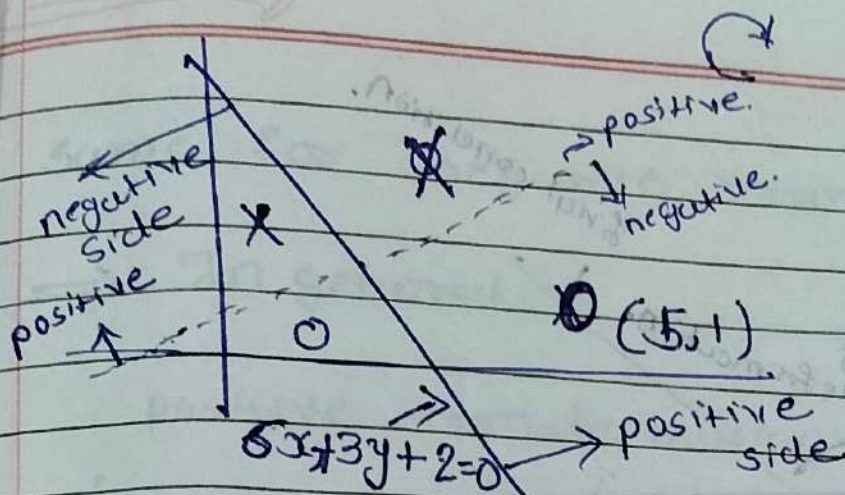 positive.
negative.
negative
side
positive
X
O
(5,1)
6x+3y+2=0
positive
side